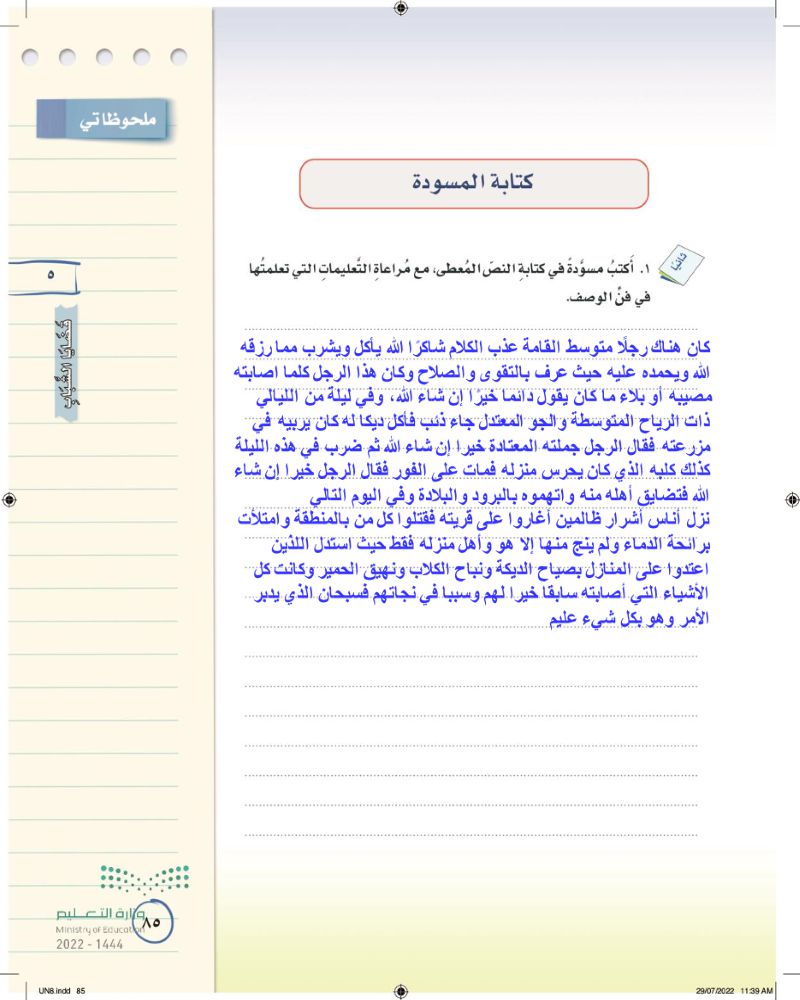 ملحوظاتي
كتابة المسودة
ثانيًا
١. أَكتبُ مسوَّدةً في كتابةِ النصّ المُعطى، مع مُراعاةِ التَّعليماتِ التي تعلمتُها
في فنِّ الوصف.
كان هناك رجلًا متوسط القامة عذب الكلام شاكرًا الله يأكل ويشرب مما رزقه
الله ويحمده عليه حيث عرف بالتقوى والصلاح وكان هذا الرجل كلما اصابته
مصيبه أو بلاء ما كان يقول دائما خيرًا إن شاء الله، وفي ليلة من الليالي
ذات الرياح المتوسطة والجو المعتدل جاء ذئب فأكل ديكا له كان يربيه في
مزرعته فقال الرجل جملته المعتادة خيرا إن شاء الله ثم ضرب في هذه الليلة
كذلك كلبه الذي كان يحرس منزله فمات على الفور فقال الرجل خيرا إن شاء
الله فتضايق أهله منه واتهموه بالبرود والبلادة وفي اليوم التالي
نزل أناس أشرار ظالمين أغاروا على قريته فقتلوا كل من بالمنطقة وامتلأت
برائحة الدماء ولم ينج منها إلا هو وأهل منزله فقط حيث استدل اللذين
اعتدوا على المنازل بصياح الديكة ونباح الكلاب ونهيق الحمير وكانت كل
الأشياء التي أصابته سابقا خيرا لهم وسببا في نجاتهم فسبحان الذي يدبر
الأمر وهو بكل شيء عليم
٥
قضايا الشَّبابِ
وزارة التعـليم
Ministry of Education
2022 - 1444
٨٥
UN8.indd 85
29/07/2022 11:39 AM